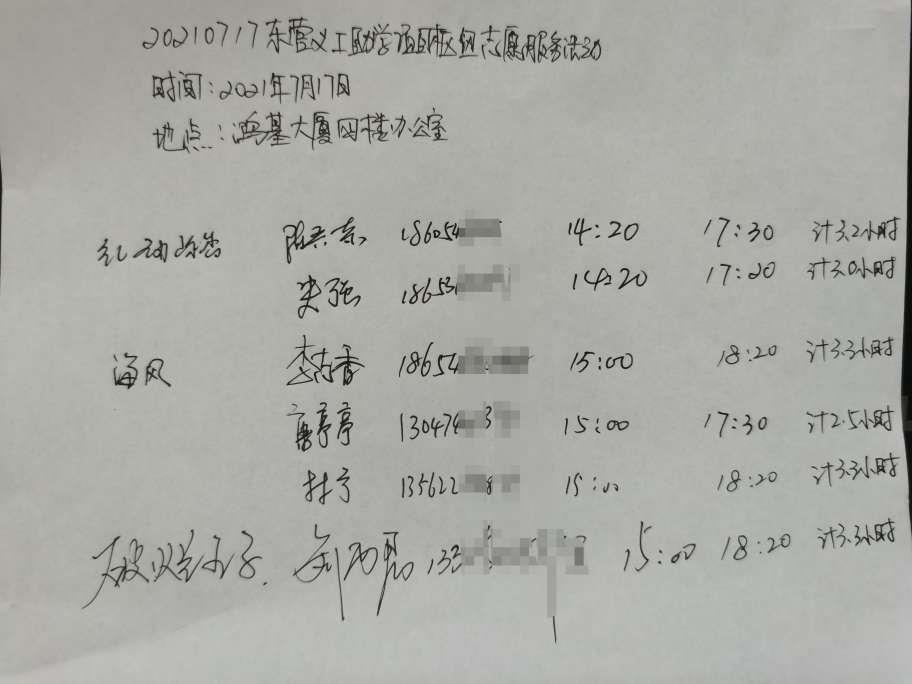 20210717东营义工助学项目枢纽志愿服务活动
时间:2021年7月17日
地点:鸿基大厦四楼办公室
186054 14:20 17:30 计3.2小时
史强 18653 14:20 17:20 计3.0小时
海风 李志香 18654 15:00 18:20 计3.3小时
唐亭亭 130474 3 15:00 17:30 计2.5小时
135622 8 15:00 18:20 计3.3小时
15:00 18:20 计3.3小时